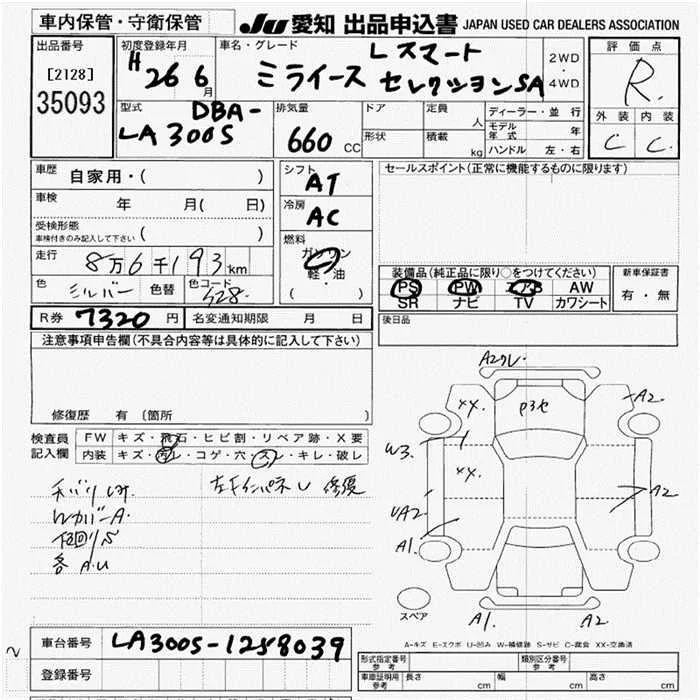 車内保管・守衛保管
JU 愛知 出品申込書 JAPAN USED CAR DEALERS ASSOCIATION
出品番号
[2128]
35093
初度登録年月
H 26 6月
車名・グレード
Lスマート
ミライース セレクションSA
2WD
・
4WD
評価点
R.
外装 内装
C C.
型式
DBA-
LA300S
排気量
660 CC
ドア
形状
定員 人
積載 kg
ディーラー・並行
モデル年式 年
ハンドル 左・右
車歴
自家用・( )
車検 年 月( 日)
受検形態
車検付きのみ記入して下さい ( )
走行
8万6千193km
色 シルバー 色替 色コード S28.
シフト
AT
冷房
AC
燃料
ガソリン
軽・油
( )
セールスポイント(正常に機能するものに限ります)
装備品(純正品に限り○をつけてください)
PS PW エアB AW
SR ナビ TV カワシート
新車保証書
有・無
R券 7320 円 名変通知期限 月 日
後日品
注意事項申告欄(不具合内容等は具体的に記入して下さい)
修復歴 有(箇所
検査員
記入欄
FW キズ・飛石・ヒビ割・リペア跡・X要
内装 キズ・汚レ・コゲ・穴・スレ・キレ・破レ
WカバーA.
下回りS
各 A.U
修復
A2クレ
XX.
P3セ
A2
W3.
XX.
UA2
A2
A1.
A1.
A2
スペア
A-キズ E-エクボ U-凹み W-補修跡 S-サビ C-腐食 XX-交換済
車台番号 LA300S-1258039
登録番号
形式指定番号
参考
類別区分番号
参考
車庫証明用
参考
長さ cm 幅 cm 高さ cm